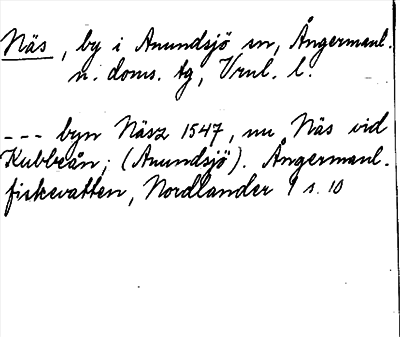 Näs, by i Anundsjö sn, Ångermanl.
n. doms. tg, Vrnl. l.
--- byn Näsz 1547, nu Näs vid
Kubbeån; (Anundsjö). Ångermanl.
fiskevatten, Nordlander 1 s. 10